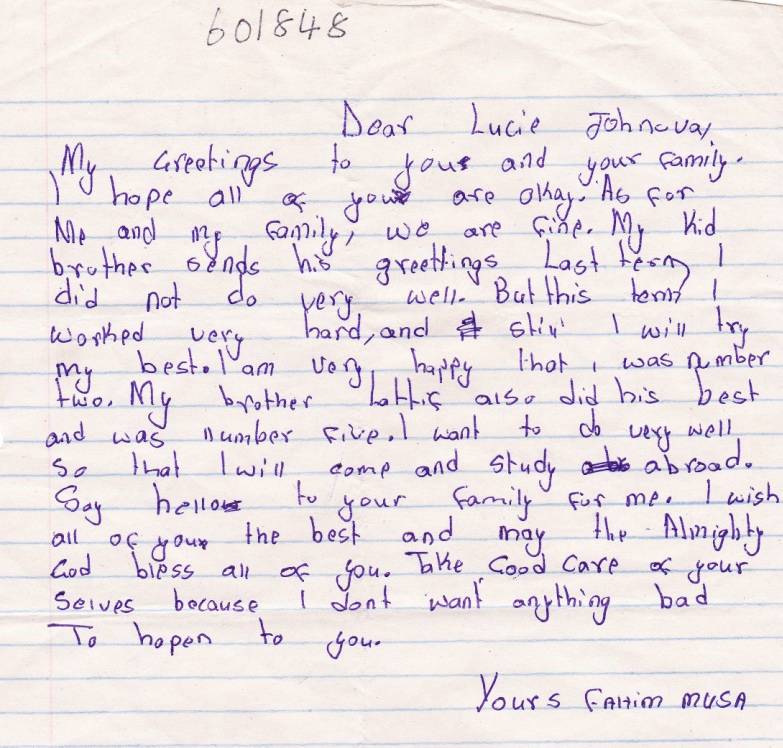 601848
Dear Lucie Johnova,
My Greetings to you and your family.
I hope all of you are okay. As for
Me and my family, we are fine. My kid
brother sends his greettings Last term I
did not do very well. But this term I
worked very hard, and still I will try
my best. I am very happy that I was number
two. My brother also did his best
and was number five. I want to do very well
So that I will come and study abroad.
Say hello to your family for me. I wish
all of you the best and may the Almighty
God bless all of you. Take Good Care of your
Selves because I dont want anything bad
To hapen to you.
Yours FAHIM MUSA